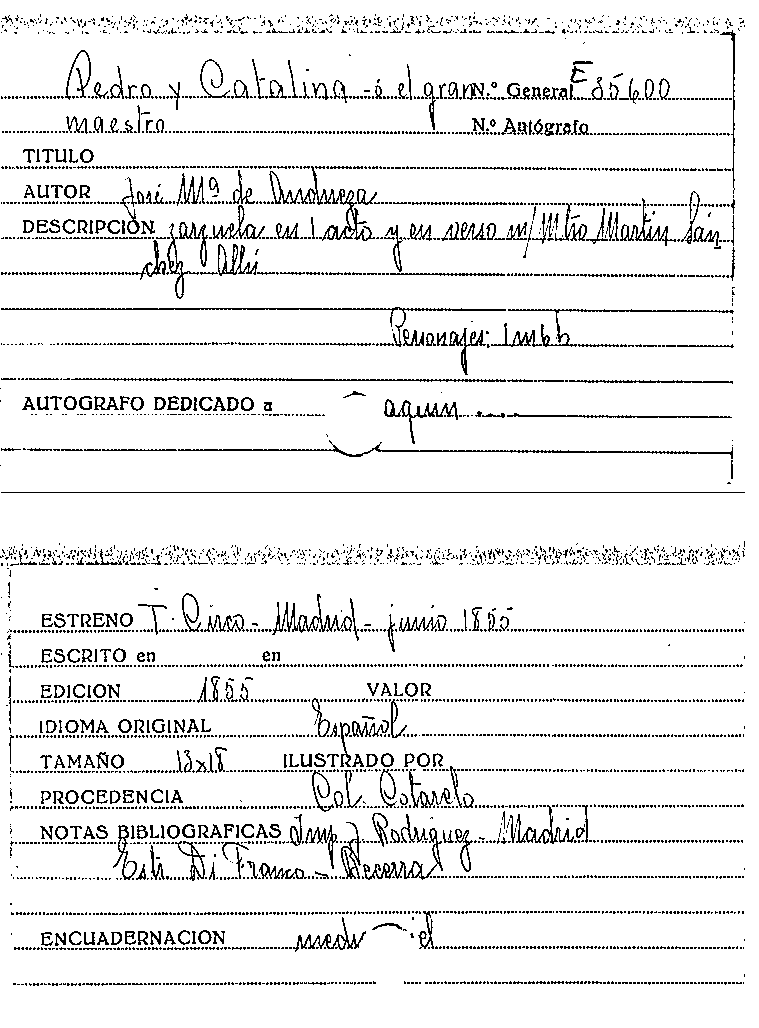 Pedro y Catalina - ó el gran N.º General E 85600
maestro N.º Autógrafo
TITULO
AUTOR José Mª de Andueza
DESCRIPCIÓN zarzuela en 1 acto y en verso m/ Mtro Martin Sán
chez Allú
Personajes: 1m6h
AUTOGRAFO DEDICADO a
ESTRENO T. Circo - Madrid - junio 1855
ESCRITO en en
EDICION 1855 VALOR
IDIOMA ORIGINAL Español
TAMAÑO 13x18 ILUSTRADO POR
PROCEDENCIA Col. Cotarelo
NOTAS BIBLIOGRAFICAS Imp J Rodriguez - Madrid
Estr. Di Franco - Becerra
ENCUADERNACION